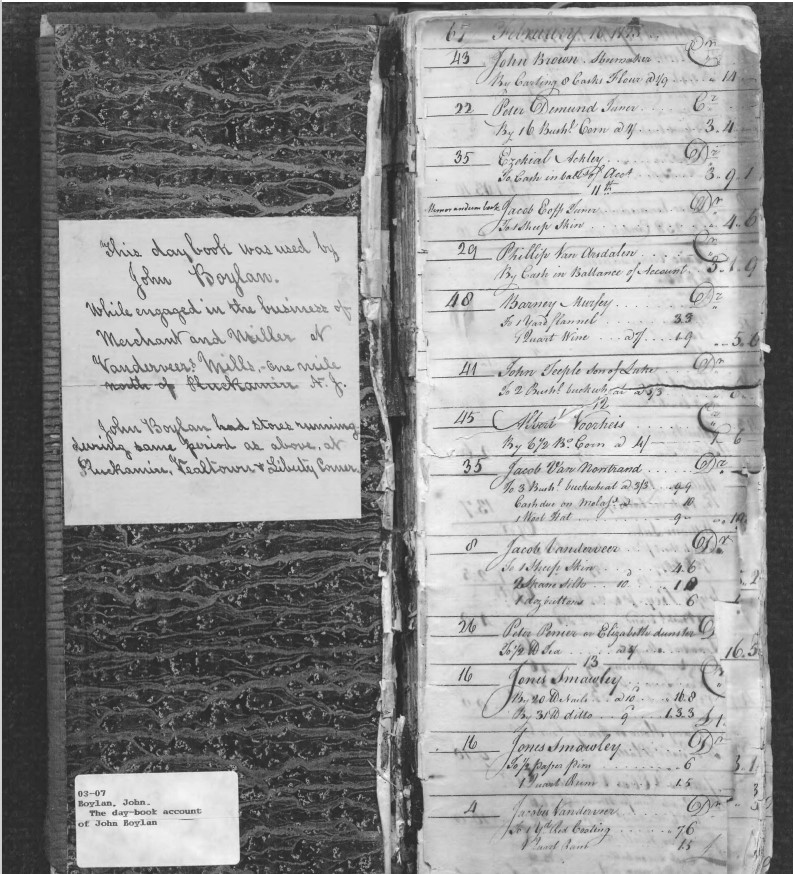 This day book was used by
John Boylan.
While engaged in the business of
Merchant and Miller at
Vanderveers Mills, one mile
north of Pluckamin N. J.
John Boylan had stores running
during same period as above, at
Pluckamin, Vealtown & Liberty Corner.
03-07
Boylan, John.
The day-book account
of John Boylan
67 February 10
43 John Brown Shumaker
By Carting 8 Casks Flour a 1/9 14
22 Peter Demund Juner Cr
By 16 Bushl Corn a 4/ 3.4
35 Ezekial Ackley Dr
To Cash in full of Acct 3 9 1
11th
Memorandum book Jacob Eoff Juner Dr
To 1 Sheep Skin 4.6
29 Phillip Van Arsdalen
By Cash in Ballance of Account 3.1.9
48 Barney Murfey Dr
To 1 Yard flannel 3 3
1 Quart Wine 1.9 5.6
41 John Teeple son of Luke Dr
To 2 Bushl buckwheat a 3/3
12
45 Albert Voorheis
By 6 1/2 Bs Corn a 4/ 6
35 Jacob Van Norstrand Dr
To 3 Bushl buckwheat a 3/3 9 9
Cash due on 10
1 Wool Hat 9
8 Jacob Vanderveer Dr
To 1 Sheep Skin 4.6
2 Skans Silk 10
1 doz buttons 6
26 Peter or Elizabeth
To 1/2 lb Tea 16.5
13
16 Jonis Smawley
By 20 lb Nails 16.8
By 31 lb ditto 9 1.3.3
16 Jonis Smawley Dr
To 1/2 Paper Pins 6
1 Quart Rum 1.5
4 Jacobus Vanderveer Dr
To 1 Yd Red Coating 7 6
1 Quart Rum 1.5